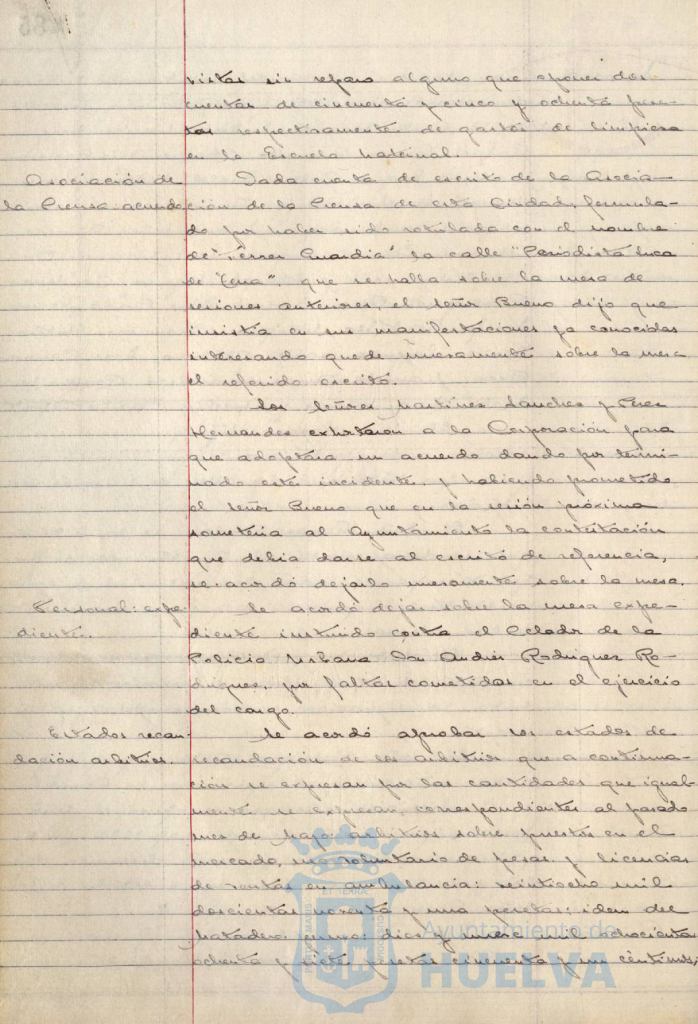 vistas sin reparo alguno que oponer dos
cuentas de cincuenta y cinco y ochenta pese-
tas respectivamente de gastos de limpieza
en la Escuela Maternal.
Asociación de
la Prensa: acuerdo
Dada cuenta de escrito de la Asocia-
ción de la Prensa de esta Ciudad, formula-
do por haber sido rotulada con el nombre
de "Ferrer Guardia" la calle "Periodista Luca
de Tena", que se halla sobre la mesa de
sesiones anteriores, el señor Bueno dijo que
insistía en sus manifestaciones ya conocidas
interesando quede nuevamente sobre la mesa
el referido escrito.
Los señores Martínez Sanchez y Perez
Hernandez exhortaron a la Corporación para
que adoptara un acuerdo dando por termi-
nado este incidente, y habiendo prometido
el señor Bueno que en la sesión próxima
sometería al Ayuntamiento la contestación
que debía darse al escrito de referencia,
se acordó dejarlo nuevamente sobre la mesa.
Personal: expe-
diente.
Se acordó dejar sobre la mesa expe-
diente instruido contra el Celador de la
Policía Urbana Don Andrés Rodriguez Ro-
driguez, por faltas cometidas en el ejercicio
del cargo.
Estados recau-
dación arbitrios.
Se acordó aprobar los estados de
recaudación de los arbitrios que a continua-
ción se expresan por las cantidades que igual-
mente se expresan, correspondientes al pasado
mes de Mayo: arbitrios sobre puestos en el
mercado, uso voluntario de pesas y licencias
de ventas en ambulancia: veintiocho mil
doscientas noventa y una pesetas; idem del
Matadero: diez y nueve mil ochocientas
ochenta y siete pesetas cincuenta y un céntimos;
Ayuntamiento de
HUELVA